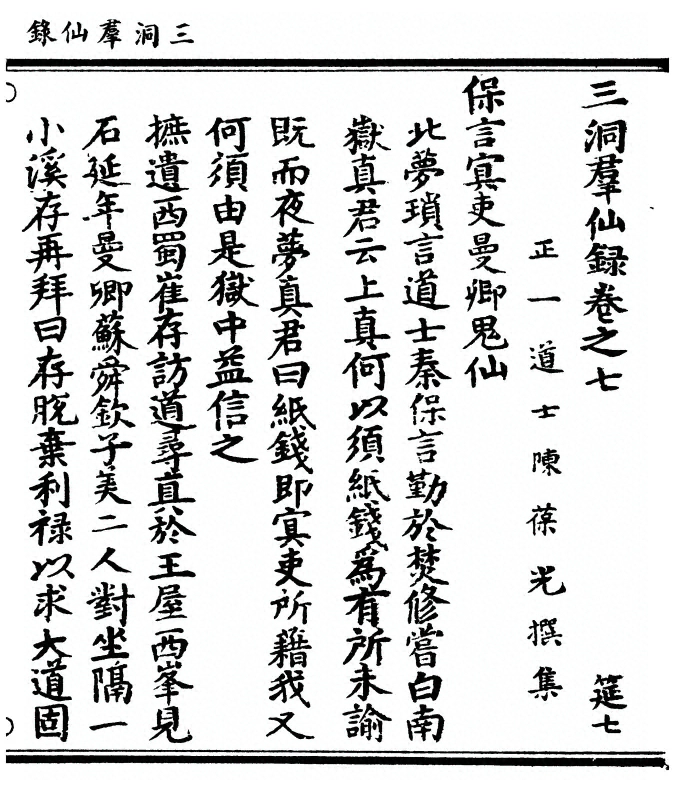 三洞羣仙錄
三洞羣仙録卷之七
筵七
正一道士陳葆光撰集
保言冥吏曼卿鬼仙
北夢瑣言道士秦保言勤於焚修嘗白南
嶽真君云上真何以須紙錢為有所未諭
既而夜夢真君曰紙錢即冥吏所藉我又
何須由是獄中益信之
摭遺西蜀崔存訪道尋真於王屋西峯見
石延年曼卿蘇舜欽子美二人對坐隔一
小溪存再拜曰存脱棄利禄以求大道固